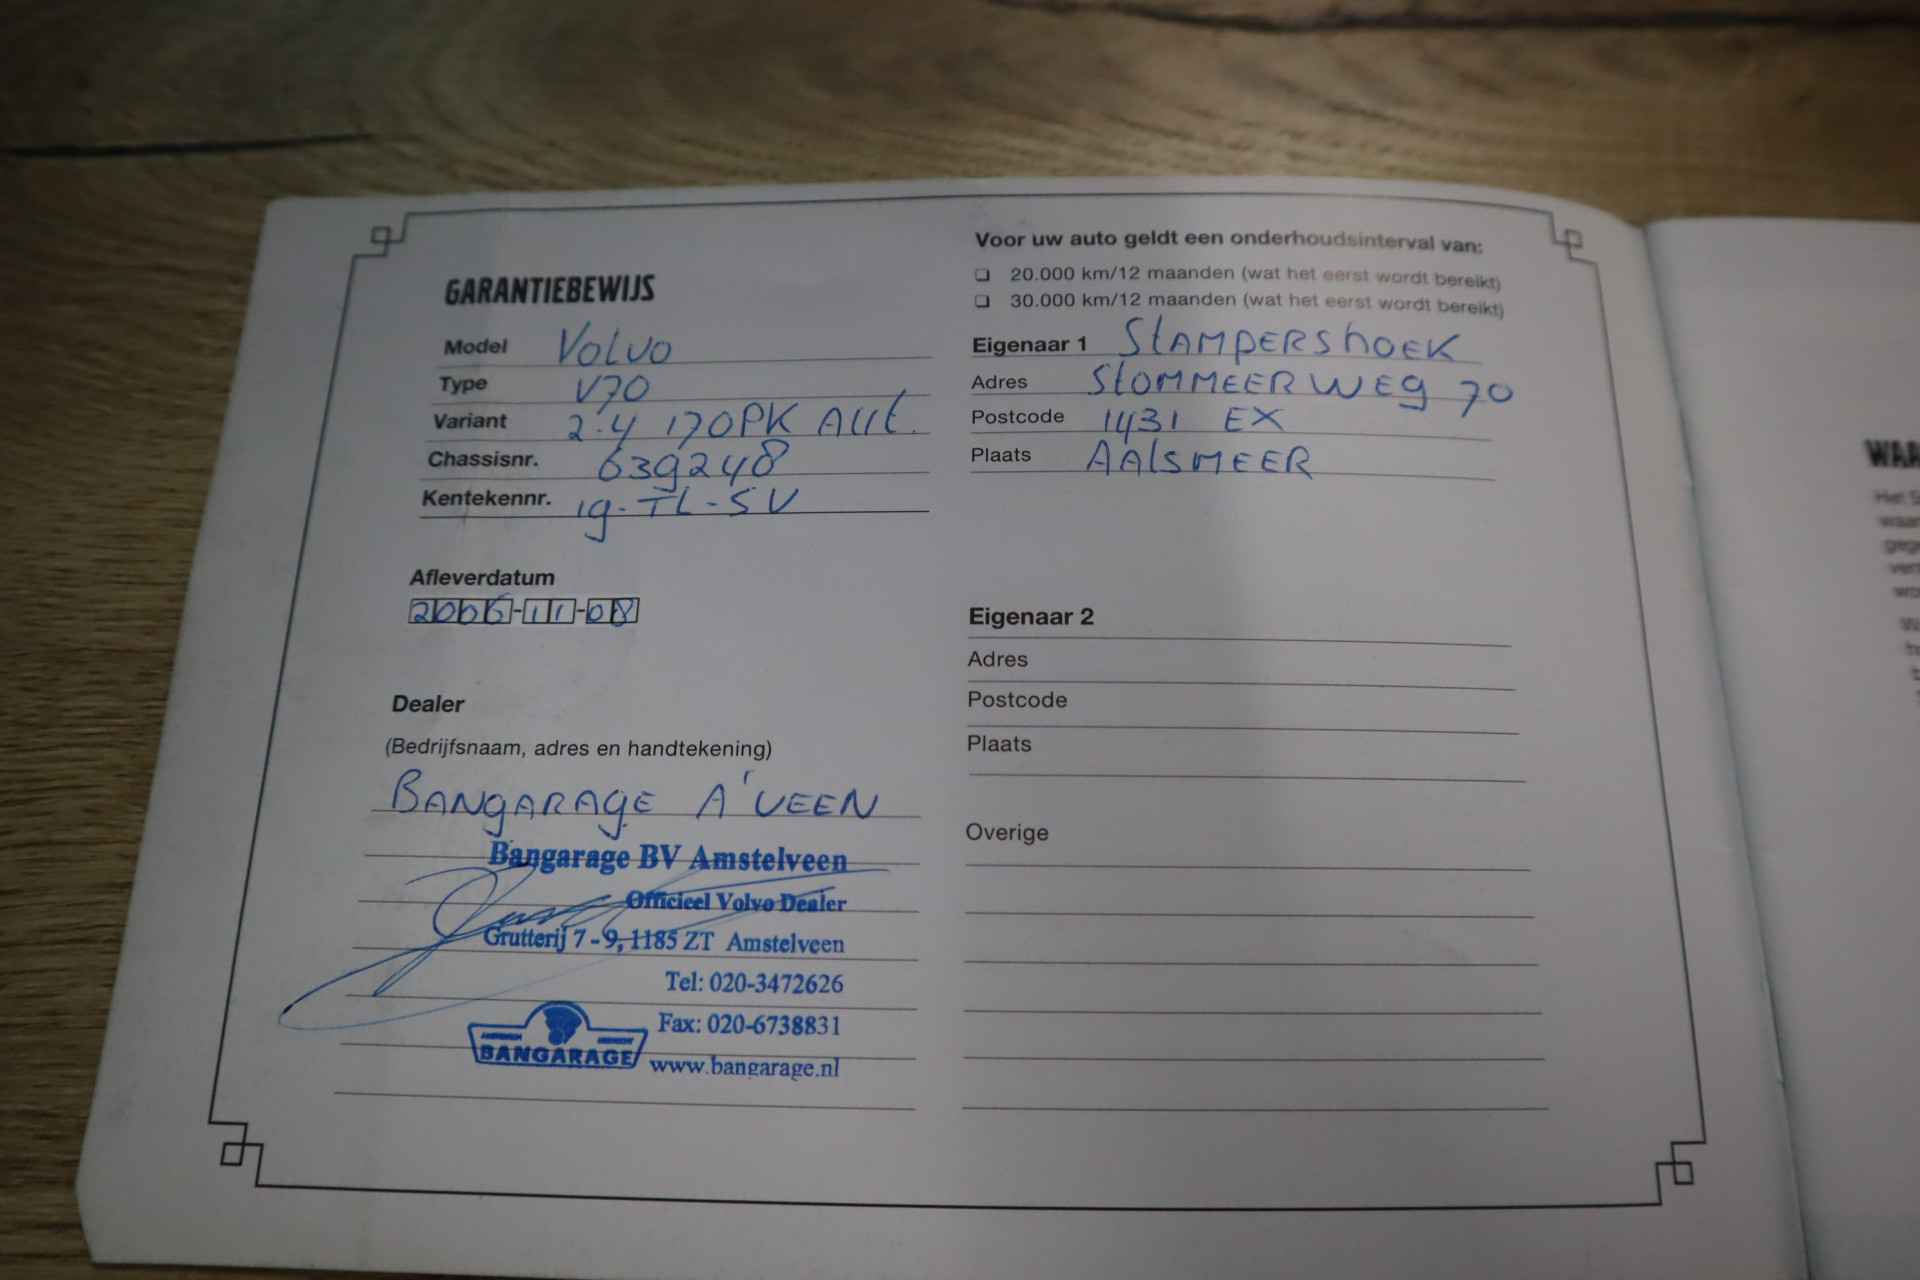 GARANTIEBEWIJS
Model Volvo
Type V70
Variant 2.4 170PK Aut.
Chassisnr. 639248
Kentekennr. 19-TL-SV
Afleverdatum
2006-11-08
Dealer
(Bedrijfsnaam, adres en handtekening)
BANGARAGE A'VEEN
Bangarage BV Amstelveen
Officieel Volvo Dealer
Grutterij 7 - 9, 1185 ZT Amstelveen
Tel: 020-3472626
Fax: 020-6738831
BANGARAGE
www.bangarage.nl
Voor uw auto geldt een onderhoudsinterval van:
❑ 20.000 km/12 maanden (wat het eerst wordt bereikt)
❑ 30.000 km/12 maanden (wat het eerst wordt bereikt)
Eigenaar 1 StAMPERShOEK
Adres StOMMEERWEg 70
Postcode 1431 EX
Plaats AAlSMEER
Eigenaar 2
Adres
Postcode
Plaats
Overige